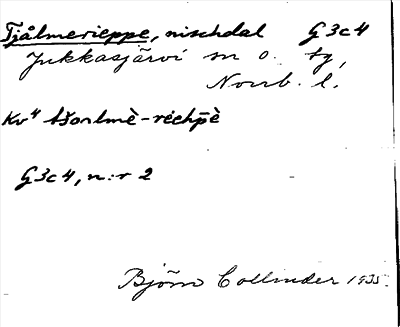 Tjålmerieppe, nischdal G3c4
Jukkasjärvi sn o. tg,
Norrb. l.
Kv⁴ tšoɑlmè-rèchpè
G3c4, n:r 2
Björn Collinder 1935.